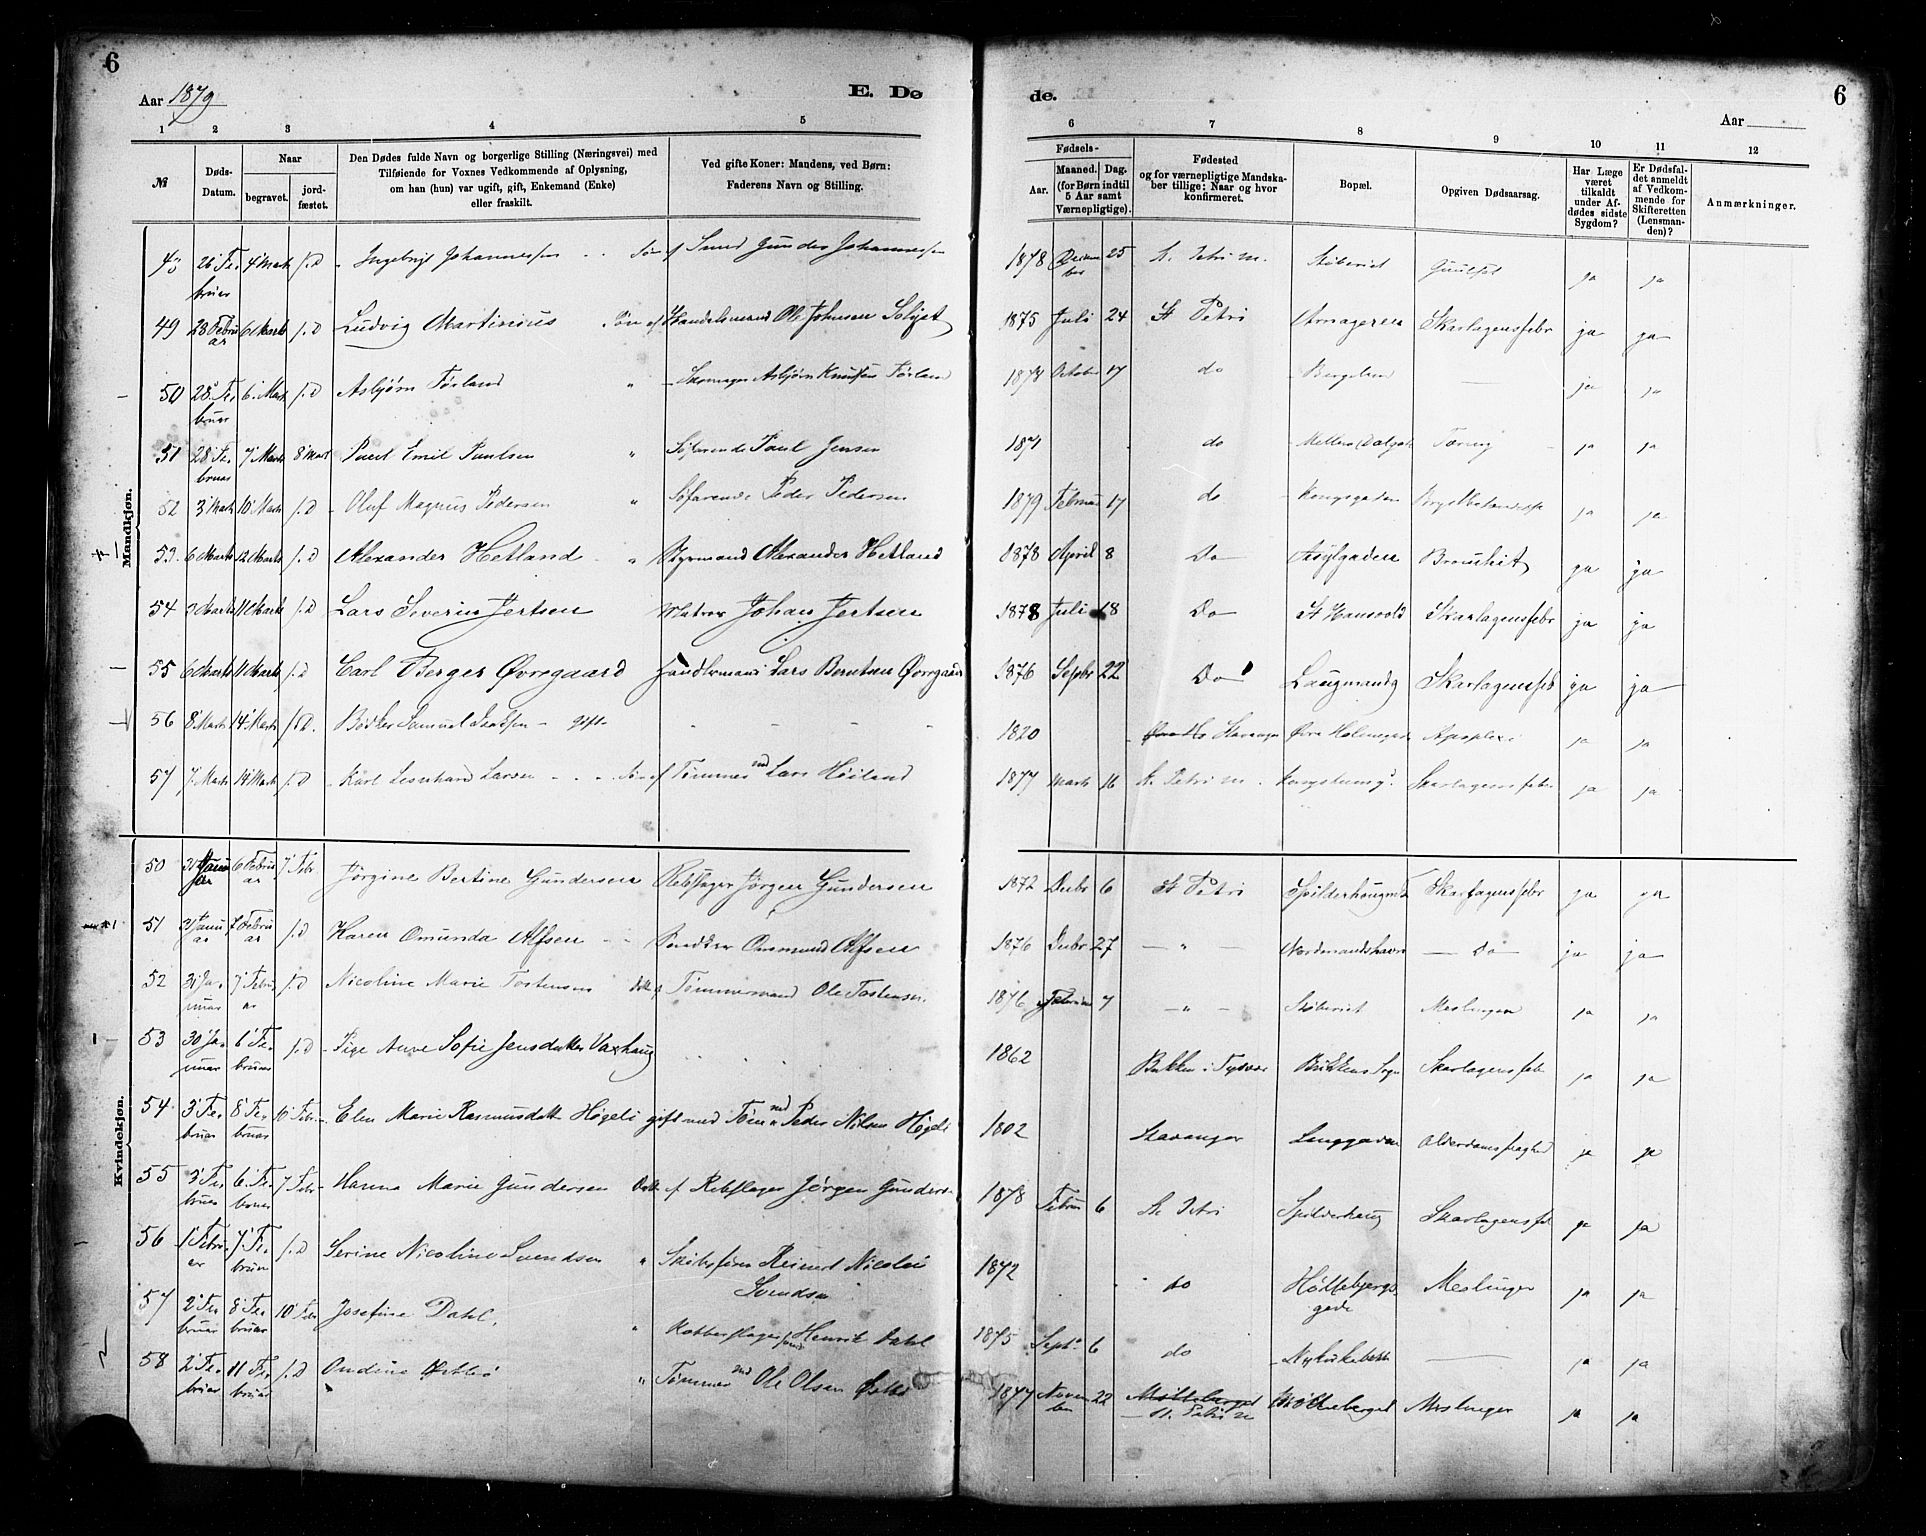 6
Aar 1879
E. Dø
de.
6
Aar
1 2 3 4 5
6 7 8 9 10 11 12
№
Døds-Datum.
Naar
begravet.
jord-fæstet.
Den Dødes fulde Navn og borgerlige Stilling (Næringsvei) med
Tilføiende for Voxnes Vedkommende af Oplysning,
om han (hun) var ugift, gift, Enkemand (Enke)
eller fraskilt.
Ved gifte Koner: Mandens, ved Børn:
Faderens Navn og Stilling.
Fødsels-
Aar.
Maaned. Dag.
(for Børn indtil
5 Aar samt
Værnepligtige).
Fødested
og for værnepligtige Mandska-
ber tillige: Naar og hvor
konfirmeret.
Bopæl.
Opgiven Dødsaarsag.
Har Læge
været
tilkaldt
under Af-
dødes sidste
Sygdom?
Er Dødsfal-
det anmeldt
af Vedkom-
mende for
Skifteretten
(Lensman-
den)?
Anmærkninger.
Mandkjøn.
26 Februar 4 Marts s.D Ingebrigt Johannessen Søn af Smed Gunder Johannessen 1878 December 25 St. Petri M. ja ja
49 28 Februar 6 Marts s.D Ludvig Martinius Søn af Handelsmand Ole Johnsen 1875 Juli 24 St Petri Skarlagensfebr ja ja
50 28 Februar 6 Marts s.D Asbjørn Tørland " Asbjørn Knutsen Tørland October 17 do Bergelen — ja ja
51 28 Februar 7 Marts 8 Mart Paul Emil Paulsen " Søfarende Paul Jensen do Tæring ja ja
52 3 Marts 10 Marts s.D Oluf Magnus Pedersen " Søfarende Peder Pedersen 1879 Februar 17 do Kongsgaden ja ja
53 6 Marts 12 Marts s.D Alexander Hetland " Styrmand Alexander Hetland 1878 April 8 Do Asylgaden Bronchit ja ja
54 Marts 11 Marts s.D Lars Severin Jertsen Matros Johan Jertsen 1878 Juli 18 Do St Hansvold Skarlagensfebr ja ja
55 6 Marts 11 Marts s.D Carl Berger Øvregaard Handlsmand Lars Berntsen Øvregaard 1876 Sepbr 22 Do Laugmandg Skarlagensfeb ja ja
56 8 Marts 14 Marts s.D. Bødker Samuel gift - - - 1820 Stavanger Øvre Holmegade Apoplexi ja ja
57 7 Marts 14 Marts s.D Karl Leonhard Larsen Søn af Tømmermd Lars Høiland 1877 Marts 16 St. Petri M. Skarlagensfeber ja ja
Kvindekjøn.
50 31 Januar 6 Februar 7 Febr Jørgine Bertine Gundersen Rebslager Jørgen Gundersen 1872 Decbr 6 St Petri Spilderhaugen Skarlagensfebr ja ja
51 31 Januar 7 Februar s.D Karen Omunda Alfsen Ommund Alfsen 1876 Decbr 27 — " — — Do ja ja
52 31 Januar 7 Februar s.D Nicoline Marie Tostensen Datt af Tømmermand Ole Tostensen 1876 Februar 7 — " — Meslinger ja ja
53 30 Januar 6 Februar s.D Pige Anne Sofie Jensdatter Vaxhaug 1862 Bukken i Tysvær Bukkens Sogn Skarlagensfeber ja ja
54 3 Februar 8 Februar 10 Febr Elen Marie Rasmusdatt Høgeli gift med Tømmermd Peder Nilsen Høgeli 1802 Stavanger Langgaden Alderdomssvaghed ja ja
55 3 Februar 6 Februar 7 Febr Hanna Marie Gundersen Datt af Rebslager Jørgen Gundersen 1878 Februar 6 St. Petri Spilderhaug Skarlagensfeb ja ja
56 1 Februar 7 Februar s.D Serine Nicoline Svendsen " Skibsfører Reinert Nicolai
Svendsen 1872 do Høttebjergsgade Meslinger ja ja
57 2 Februar 8 Februar 10 Febr Josefine Dahl, " Kobberslager Henrik Dahl 1875 Septb. 6 do — ja ja
58 2 Februar 11 Februar s.D Ondine Østbø " Tømmermd Ole Olsen Østbø 1877 November 22 St. Petri M Møtteberget Meslinger ja ja